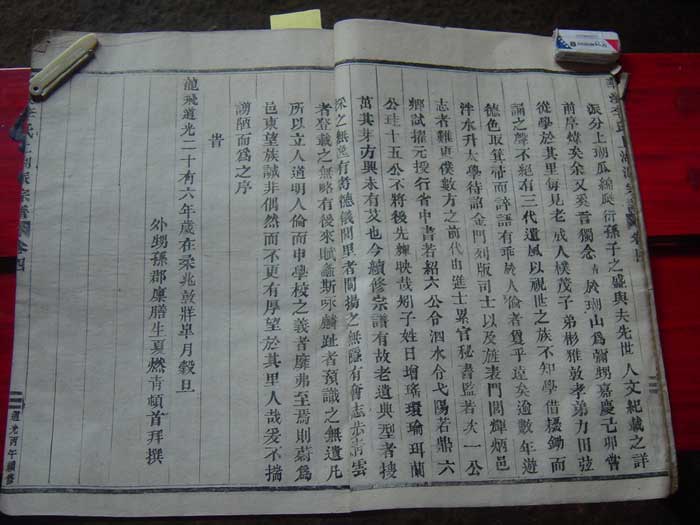 派分上湖瓜綿瓞衍孫子之盛與夫先世人文紀載之詳
前序煒矣余又奚言獨念 於湖山為彌甥嘉慶己卯嘗
從學於其里每見老成人樸茂子弟彬雅敦孝弟力田弦
誦之聲不絕有三代遺風以視世之族不知學借耰鋤而
德色取箕帚而誶語有乖於人倫者貫乎遠矣逾數年遊
泮水升太學待詔金門列版司士以及旌表門閭輝炳邑
志者難更僕數方之前代由進士累官秘書監若次一公
鄉試擢元授行省中書若紹六公令泗水令弋陽若鼎六
公珪十五公不將後先輝映哉矧子姓日增瑤環瑜珥蘭
茁其芽方興未有艾也今續修宗譜有故老遺典型者搜
采之無逸有將德儀閭里者闡揚之無隱有奮志步青雲
者登載之無略有後來賦螽斯咏麟趾者預識之無遺凡
所以立人道明人倫而申學校之義者靡弗至焉則蔚為
邑東望族誠非偶然而不更有厚望於其里人哉爰不揣
謭陋而為之序
旹
龍飛道光二十有六年歲在柔兆敦牂皐月穀旦
外甥孫郡廩膳生夏燃青頓首拜撰
道光丙午續修